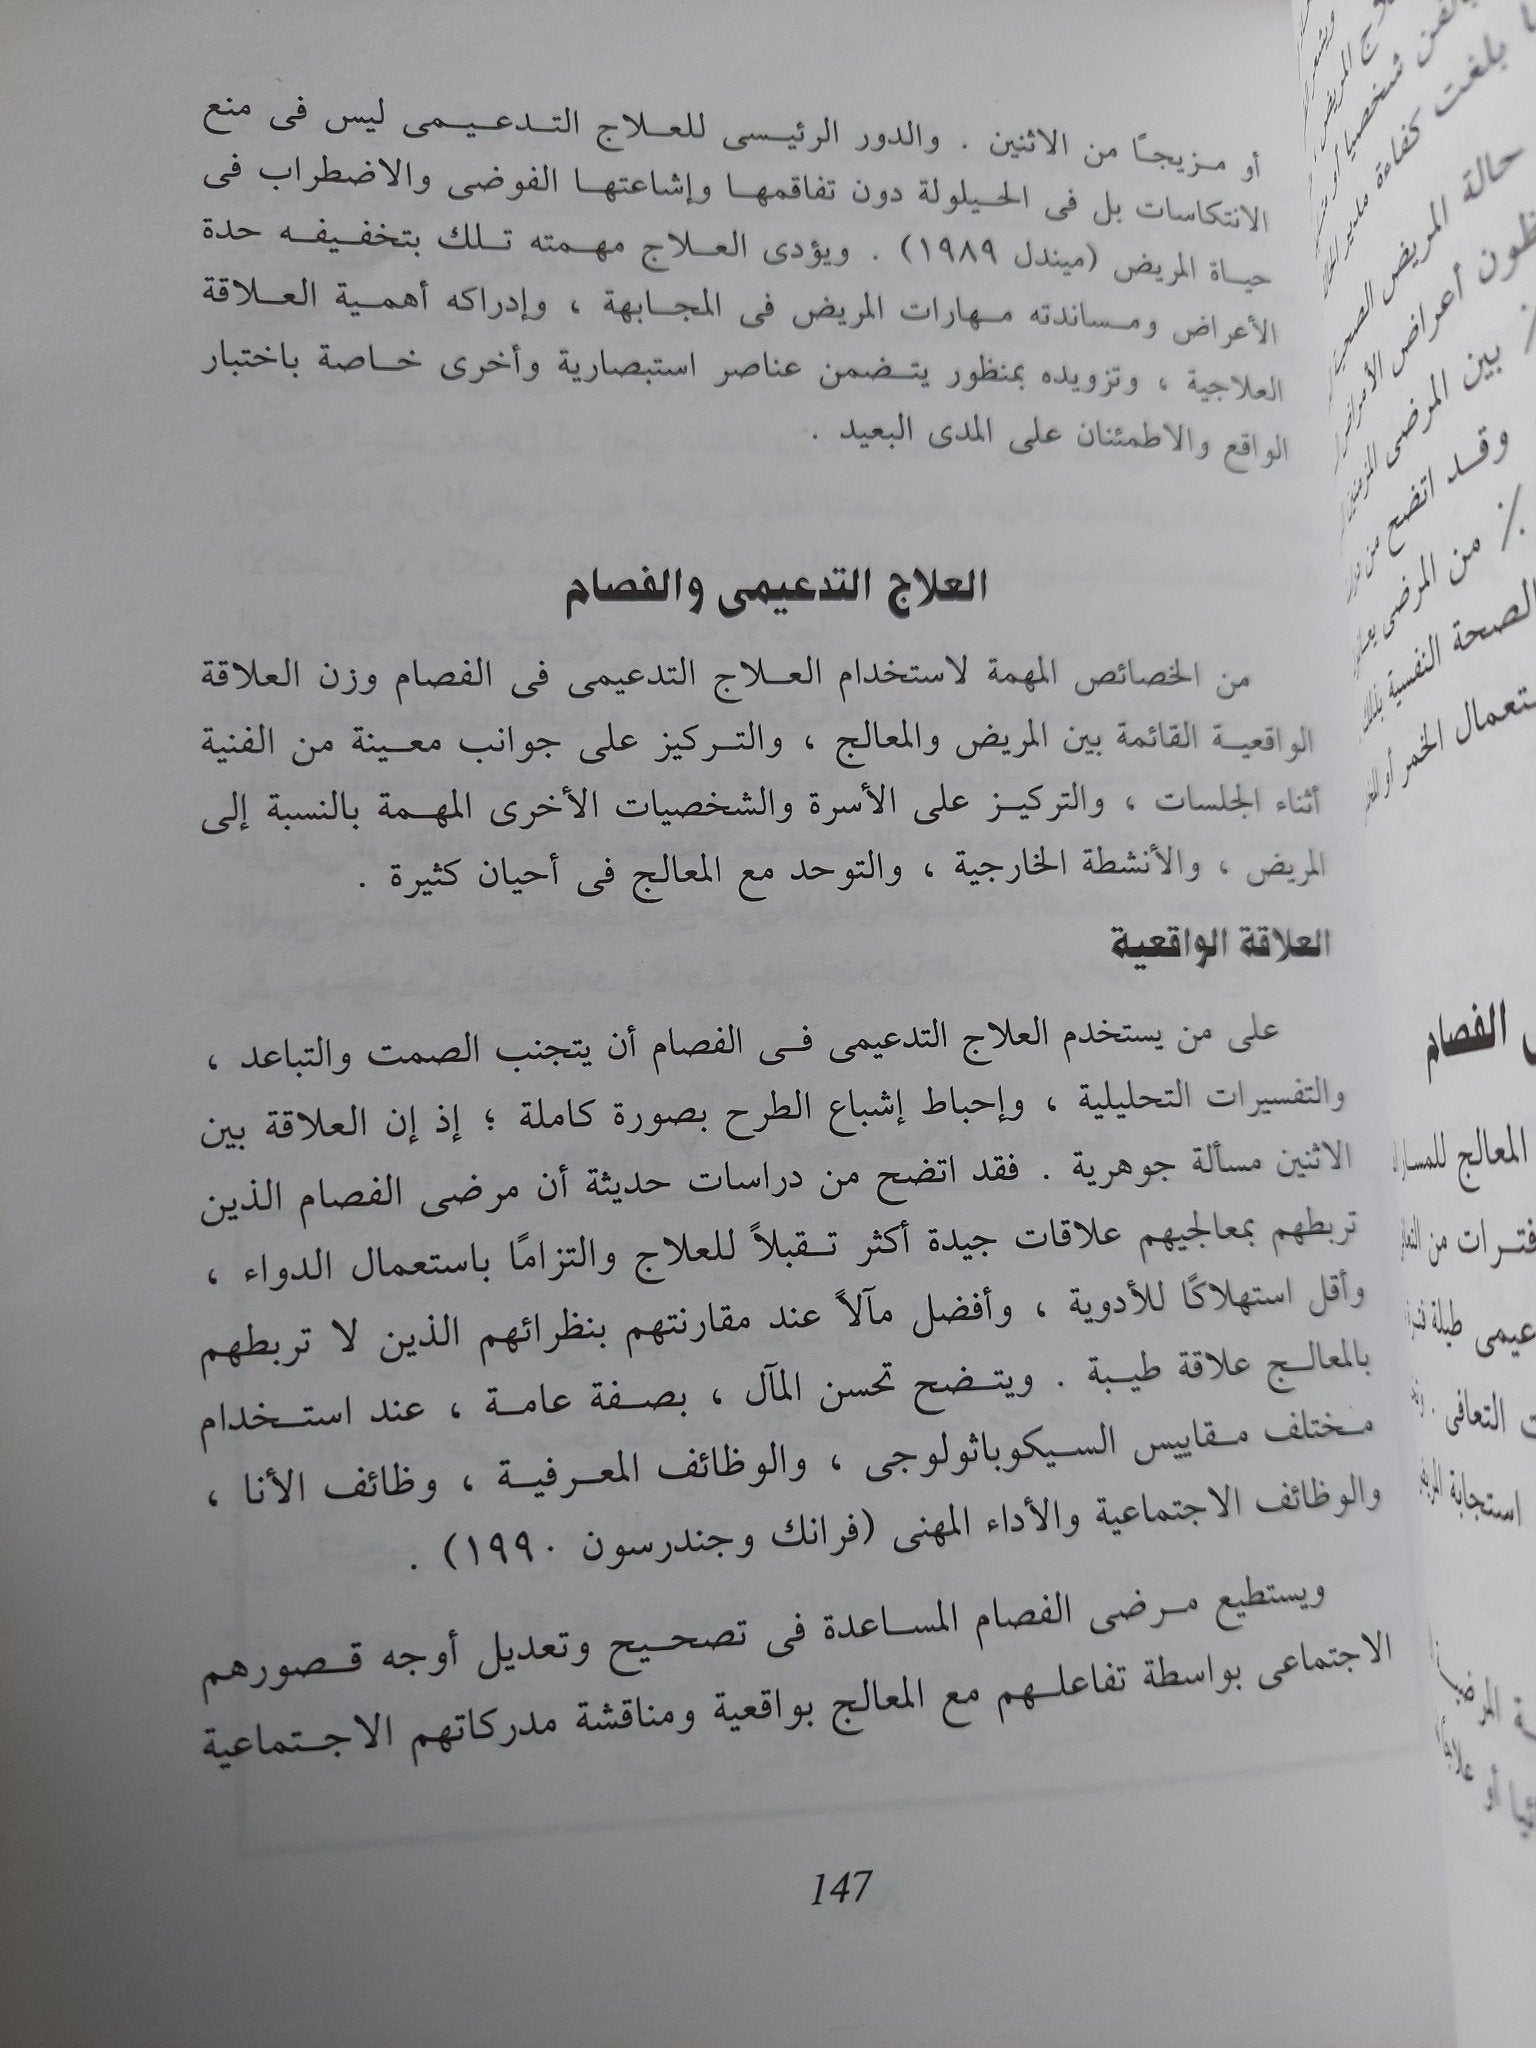 أو مزيجًا من الاثنين . والدور الرئيسى للعلاج التدعيمى ليس فى منع
الانتكاسات بل فى الحيلولة دون تفاقمها وإشاعتها الفوضى والاضطراب فى
حياة المريض (ميندل ١٩٨٩) . ويؤدى العلاج مهمته تلك بتخفيفه حدة
الأعراض ومساندته مهارات المريض فى المجابهة ، وإدراكه أهمية العلاقة
العلاجية ، وتزويده بمنظور يتضمن عناصر استبصارية وأخرى خاصة باختبار
الواقع والاطمئنان على المدى البعيد .
العلاج التدعيمى والفصام
من الخصائص المهمة لاستخدام العلاج التدعيمى فى الفصام وزن العلاقة
الواقعية القائمة بين المريض والمعالج ، والتركيز على جوانب معينة من الفنية
أثناء الجلسات ، والتركيز على الأسرة والشخصيات الأخرى المهمة بالنسبة إلى
المريض ، والأنشطة الخارجية ، والتوحد مع المعالج فى أحيان كثيرة .
العلاقة الواقعية
على من يستخدم العلاج التدعيمى فى الفصام أن يتجنب الصمت والتباعد ،
والتفسيرات التحليلية ، وإحباط إشباع الطرح بصورة كاملة ؛ إذ إن العلاقة بين
الاثنين مسألة جوهرية . فقد اتضح من دراسات حديثة أن مرضى الفصام الذين
تربطهم بمعالجيهم علاقات جيدة أكثر تقبلاً للعلاج والتزامًا باستعمال الدواء ،
وأقل استهلاكًا للأدوية ، وأفضل مآلاً عند مقارنتهم بنظرائهم الذين لا تربطهم
بالمعالج علاقة طيبة . ويتضح تحسن المآل ، بصفة عامة ، عند استخدام
مختلف مقاييس السيكوباثولوجى ، والوظائف المعرفية ، وظائف الأنا ،
والوظائف الاجتماعية والأداء المهنى (فرانك وجندرسون ١٩٩٠) .
ويستطيع مرضى الفصام المساعدة فى تصحيح وتعديل أوجه قصورهم
الاجتماعى بواسطة تفاعلهم مع المعالج بواقعية ومناقشة مدركاتهم الاجتماعية
147
بلغت كفاءة مدير
حالة المريض
أعراض
٪ بين المرضى
وقد اتضح من
٪ من المرضى
الصحة النفسية
الخمر أو
الفصام
المعالج
من
طيلة
التعافى .
استجابة